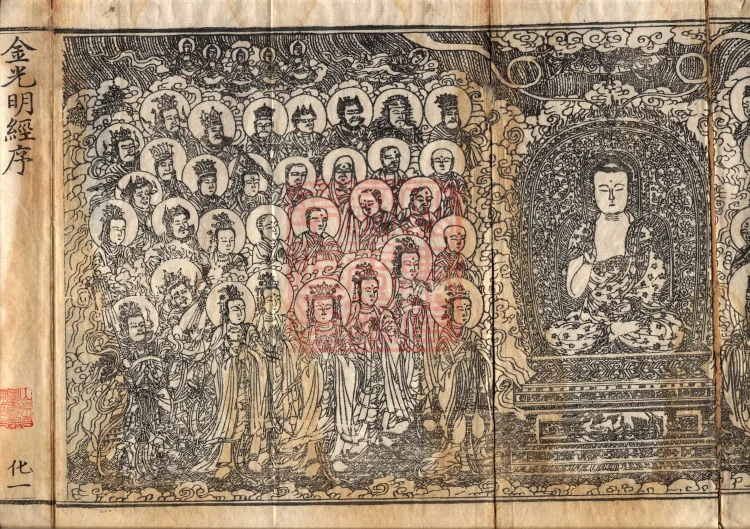 金光明經序
化一